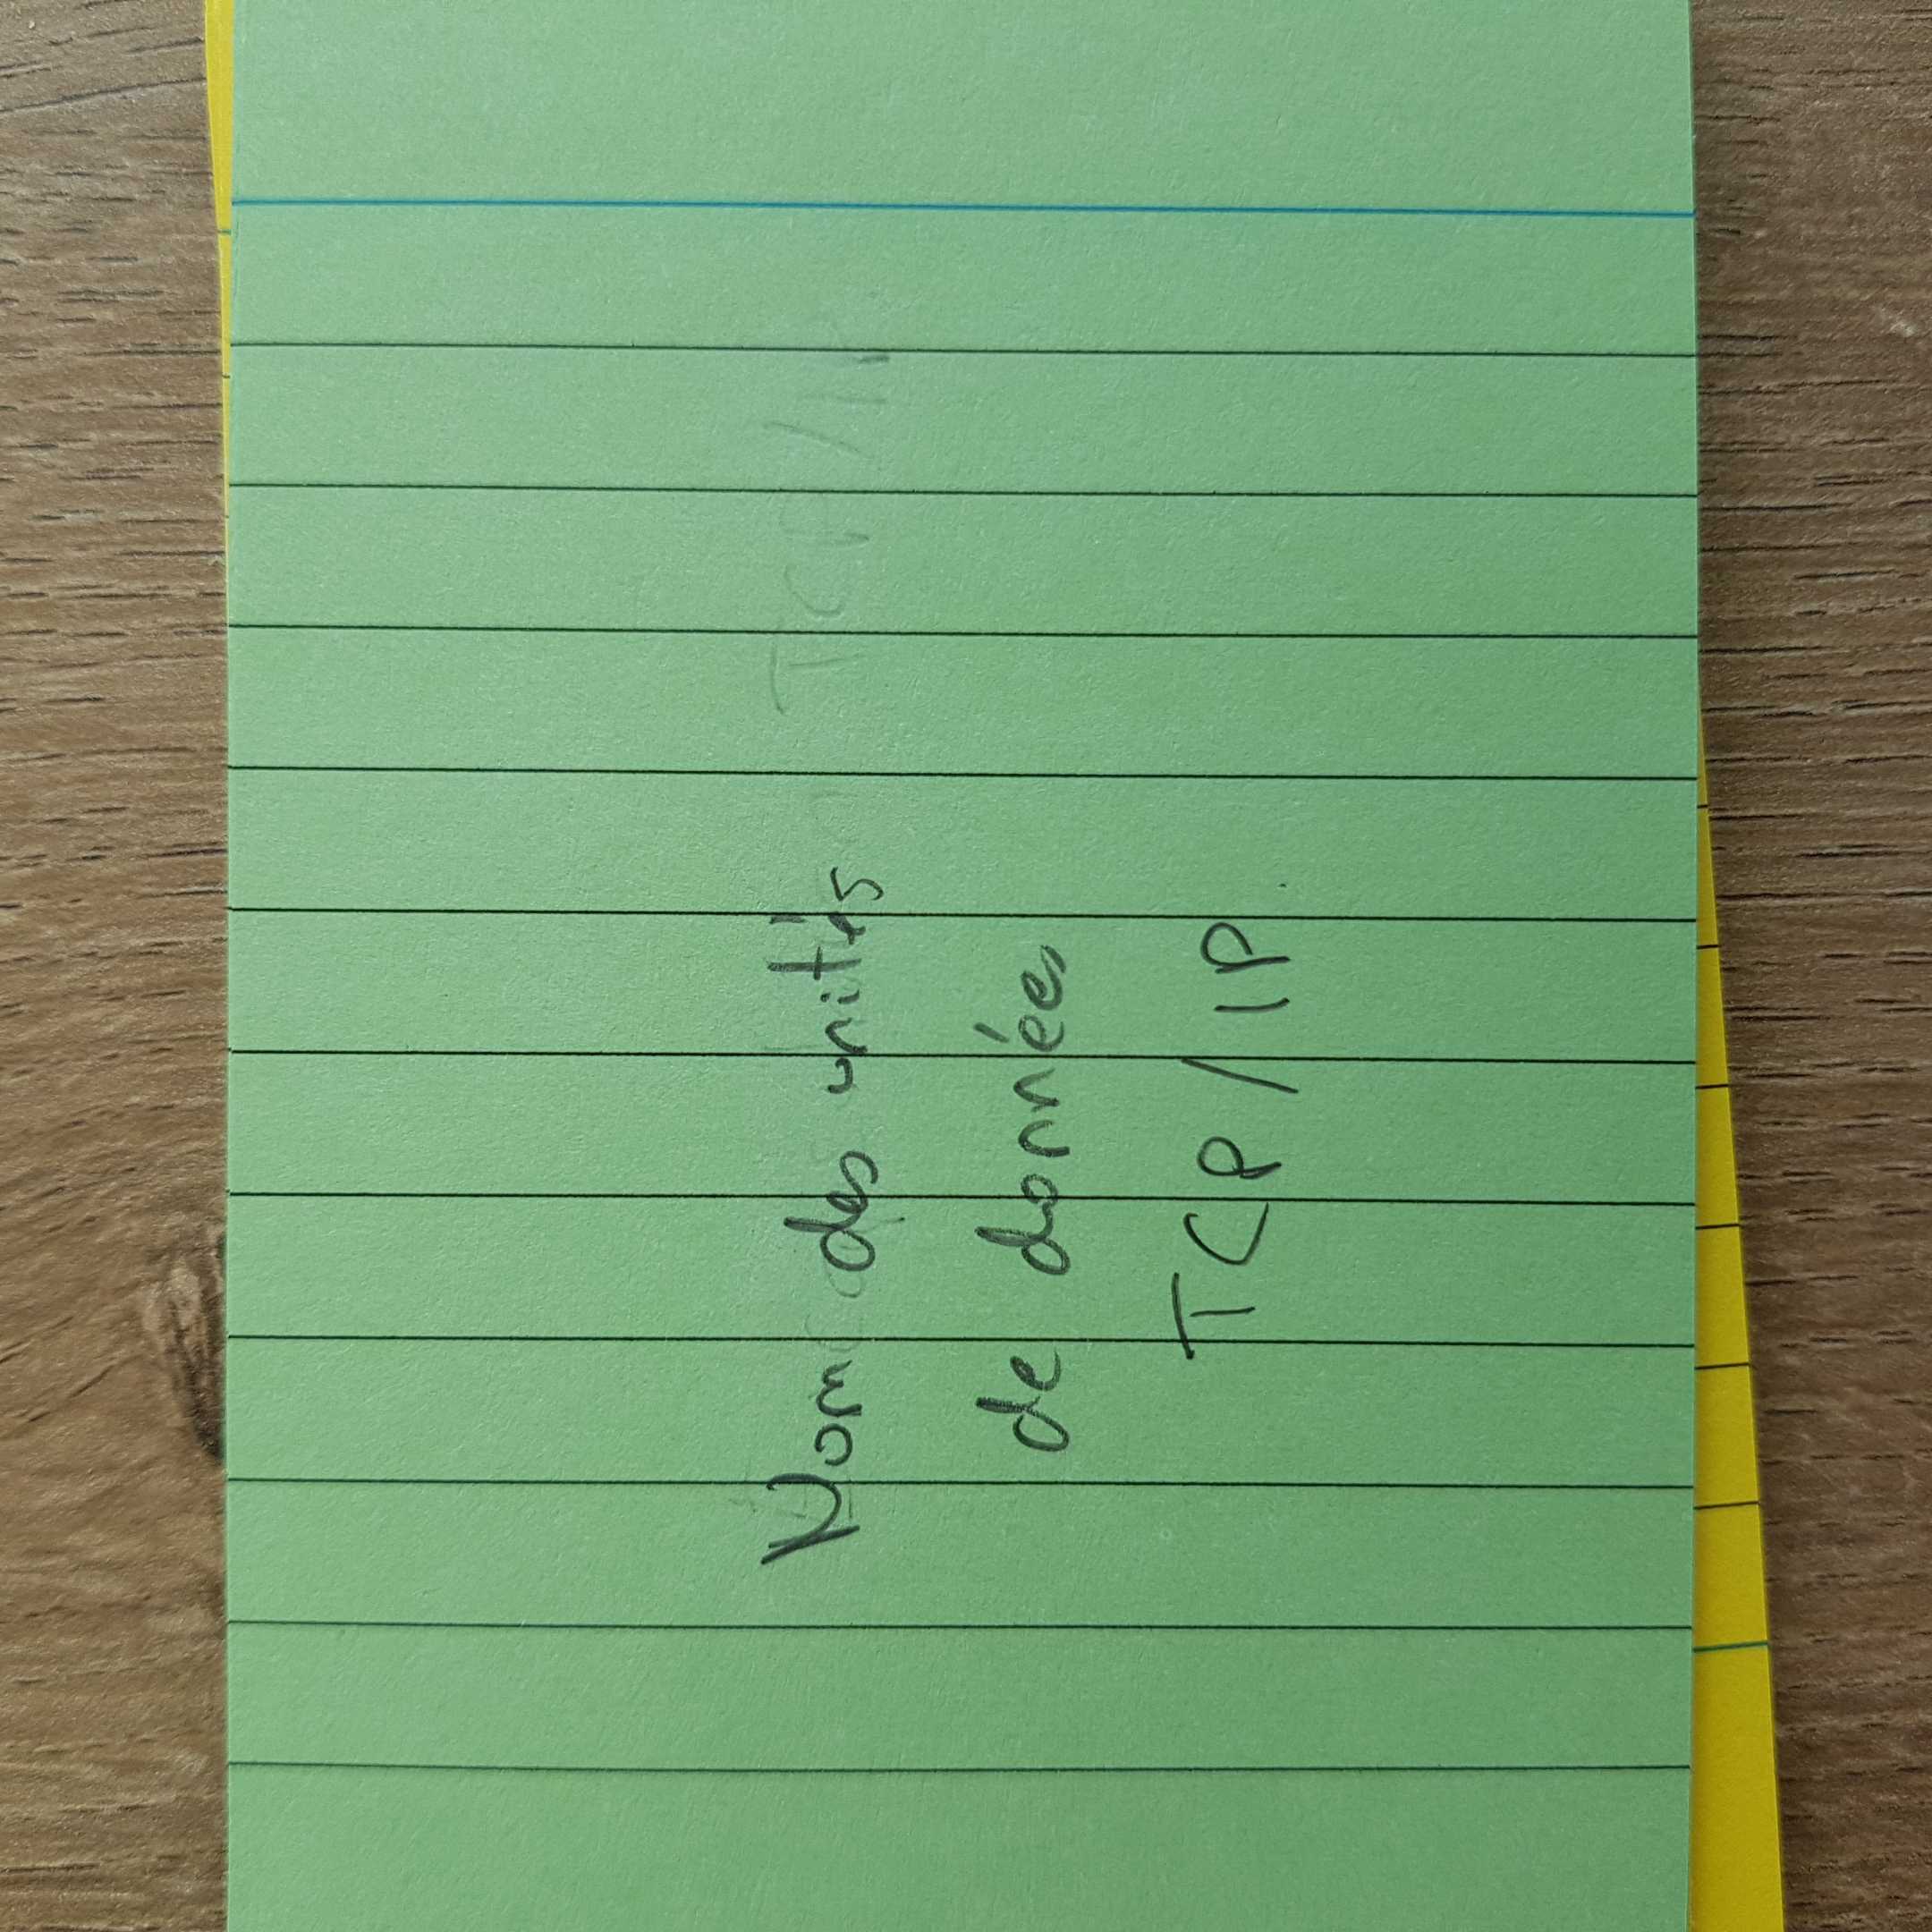 Nom des unités
de données
TCP/IP
TCP/IP